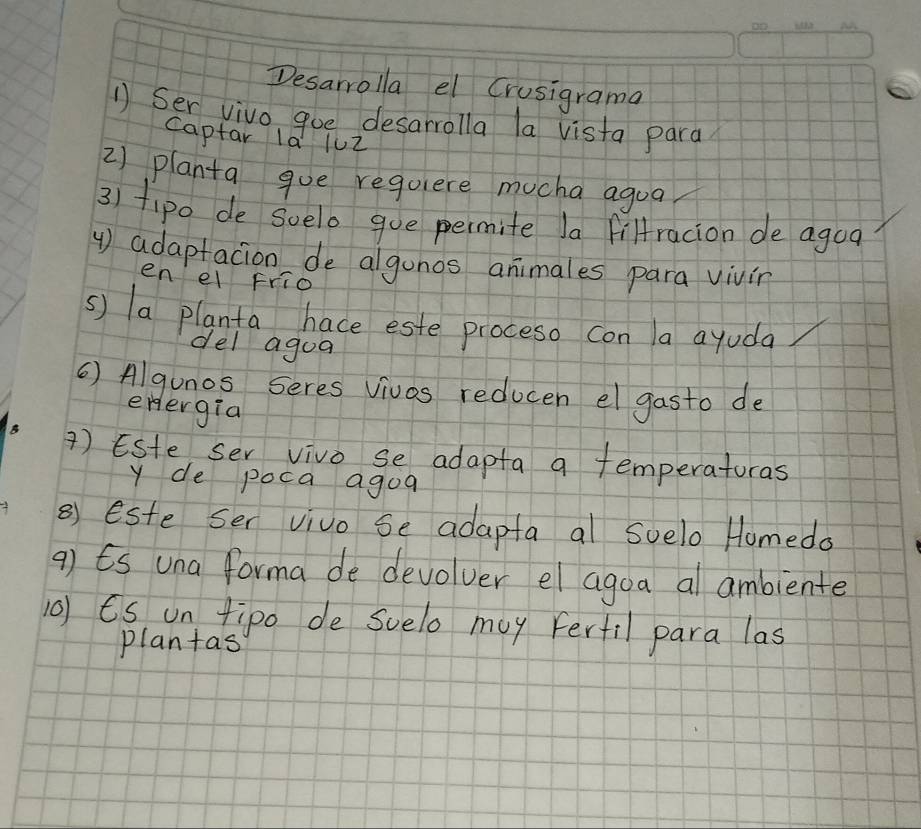 DD MM AA
Desarrolla el Crusigrama
1) Ser vivo que desarrolla la vista para
captar la luz
2) planta que requiere mucha agua
3) tipo de suelo que permite la filtracion de agua
4) adaptacion de algunos animales para vivir
en el Frio
5) la planta hace este proceso con la ayuda
del agua
6) Algunos Seres vivos reducen el gasto de
energia
7) Este ser vivo se adapta a temperaturas
y de poca agua
8) Este Ser vivo se adapta al suelo Humedo
9) Es una forma de devolver el agua al ambiente
10) Es un tipo de suelo muy Fertil para las
plantas